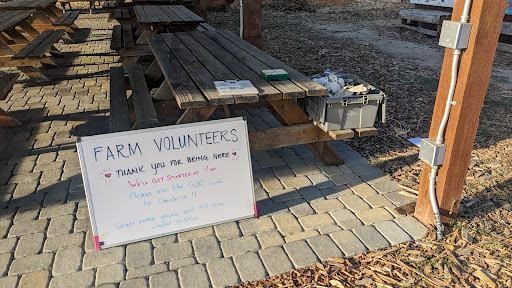 FARM VOLUNTEERS
THANK YOU FOR BEING HERE
WE'LL GET STARTED AT 9 AM
Please use the QR code
to Check-in!!
Grab some gloves and fill your
water bottles